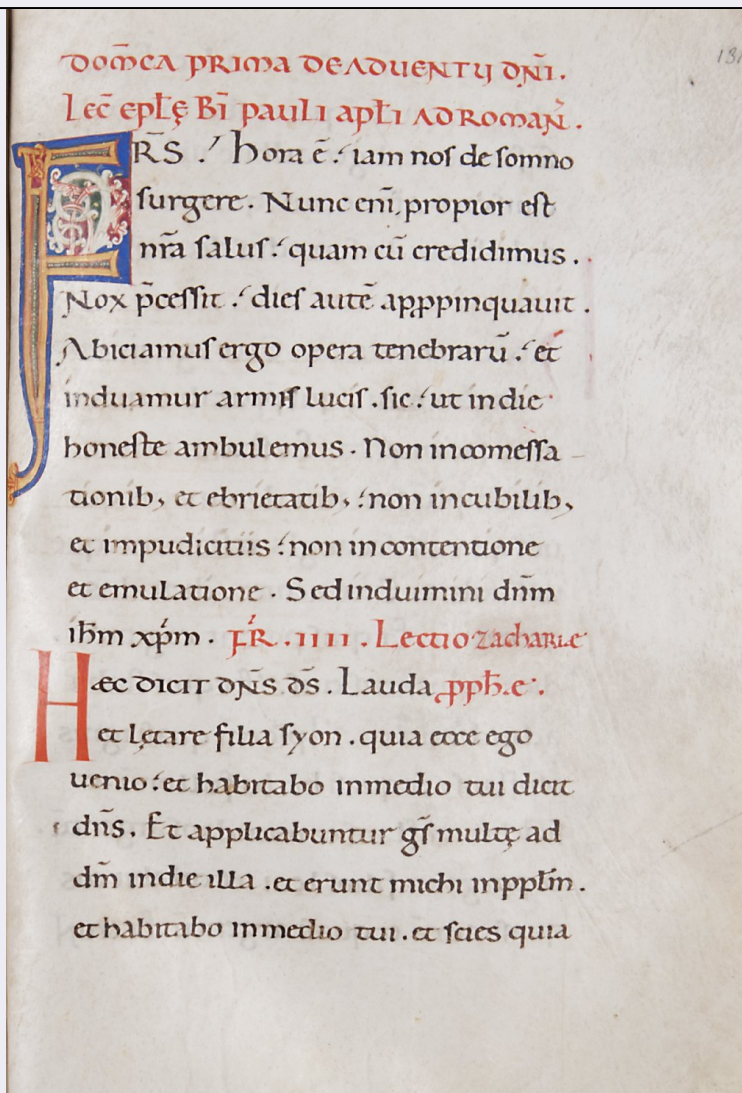 DOM̄CA PRIMA DE ADUENTU DN̄I.
Lec̄ epƚę Bī pauli apƚi AD ROMAN̄.
FRS̄ . hora ē. iam nos de somno
surgere. Nunc eni̅, propior est
nr̄a salus. quam cū credidimus.
Nox p̄cessit. dies autē apꝓpinquauit.
Abiciamus ergo opera tenebrarū. et
induamur armis lucis. sic. ut in die
honeste ambulemus. Non in comessa
tionib, et ebrietatib,. non in cubilib,
et impudicitiis. non in contentione
et emulatione. Sed induimini dnm̄
ihm̄ xp̄m. FR̄. IIII. Lectio zacharie
Hæc DICIT DN̄S D̄S. Lauda ꝓph̄.e.
et lętare filia syon. quia ecce ego
uenio. et habitabo in medio tui dicit
dn̄s. Et applicabuntur gs̄ multę ad
dm̄ in die illa. et erunt michi in ppƚm.
et habitabo in medio tui. et scies quia